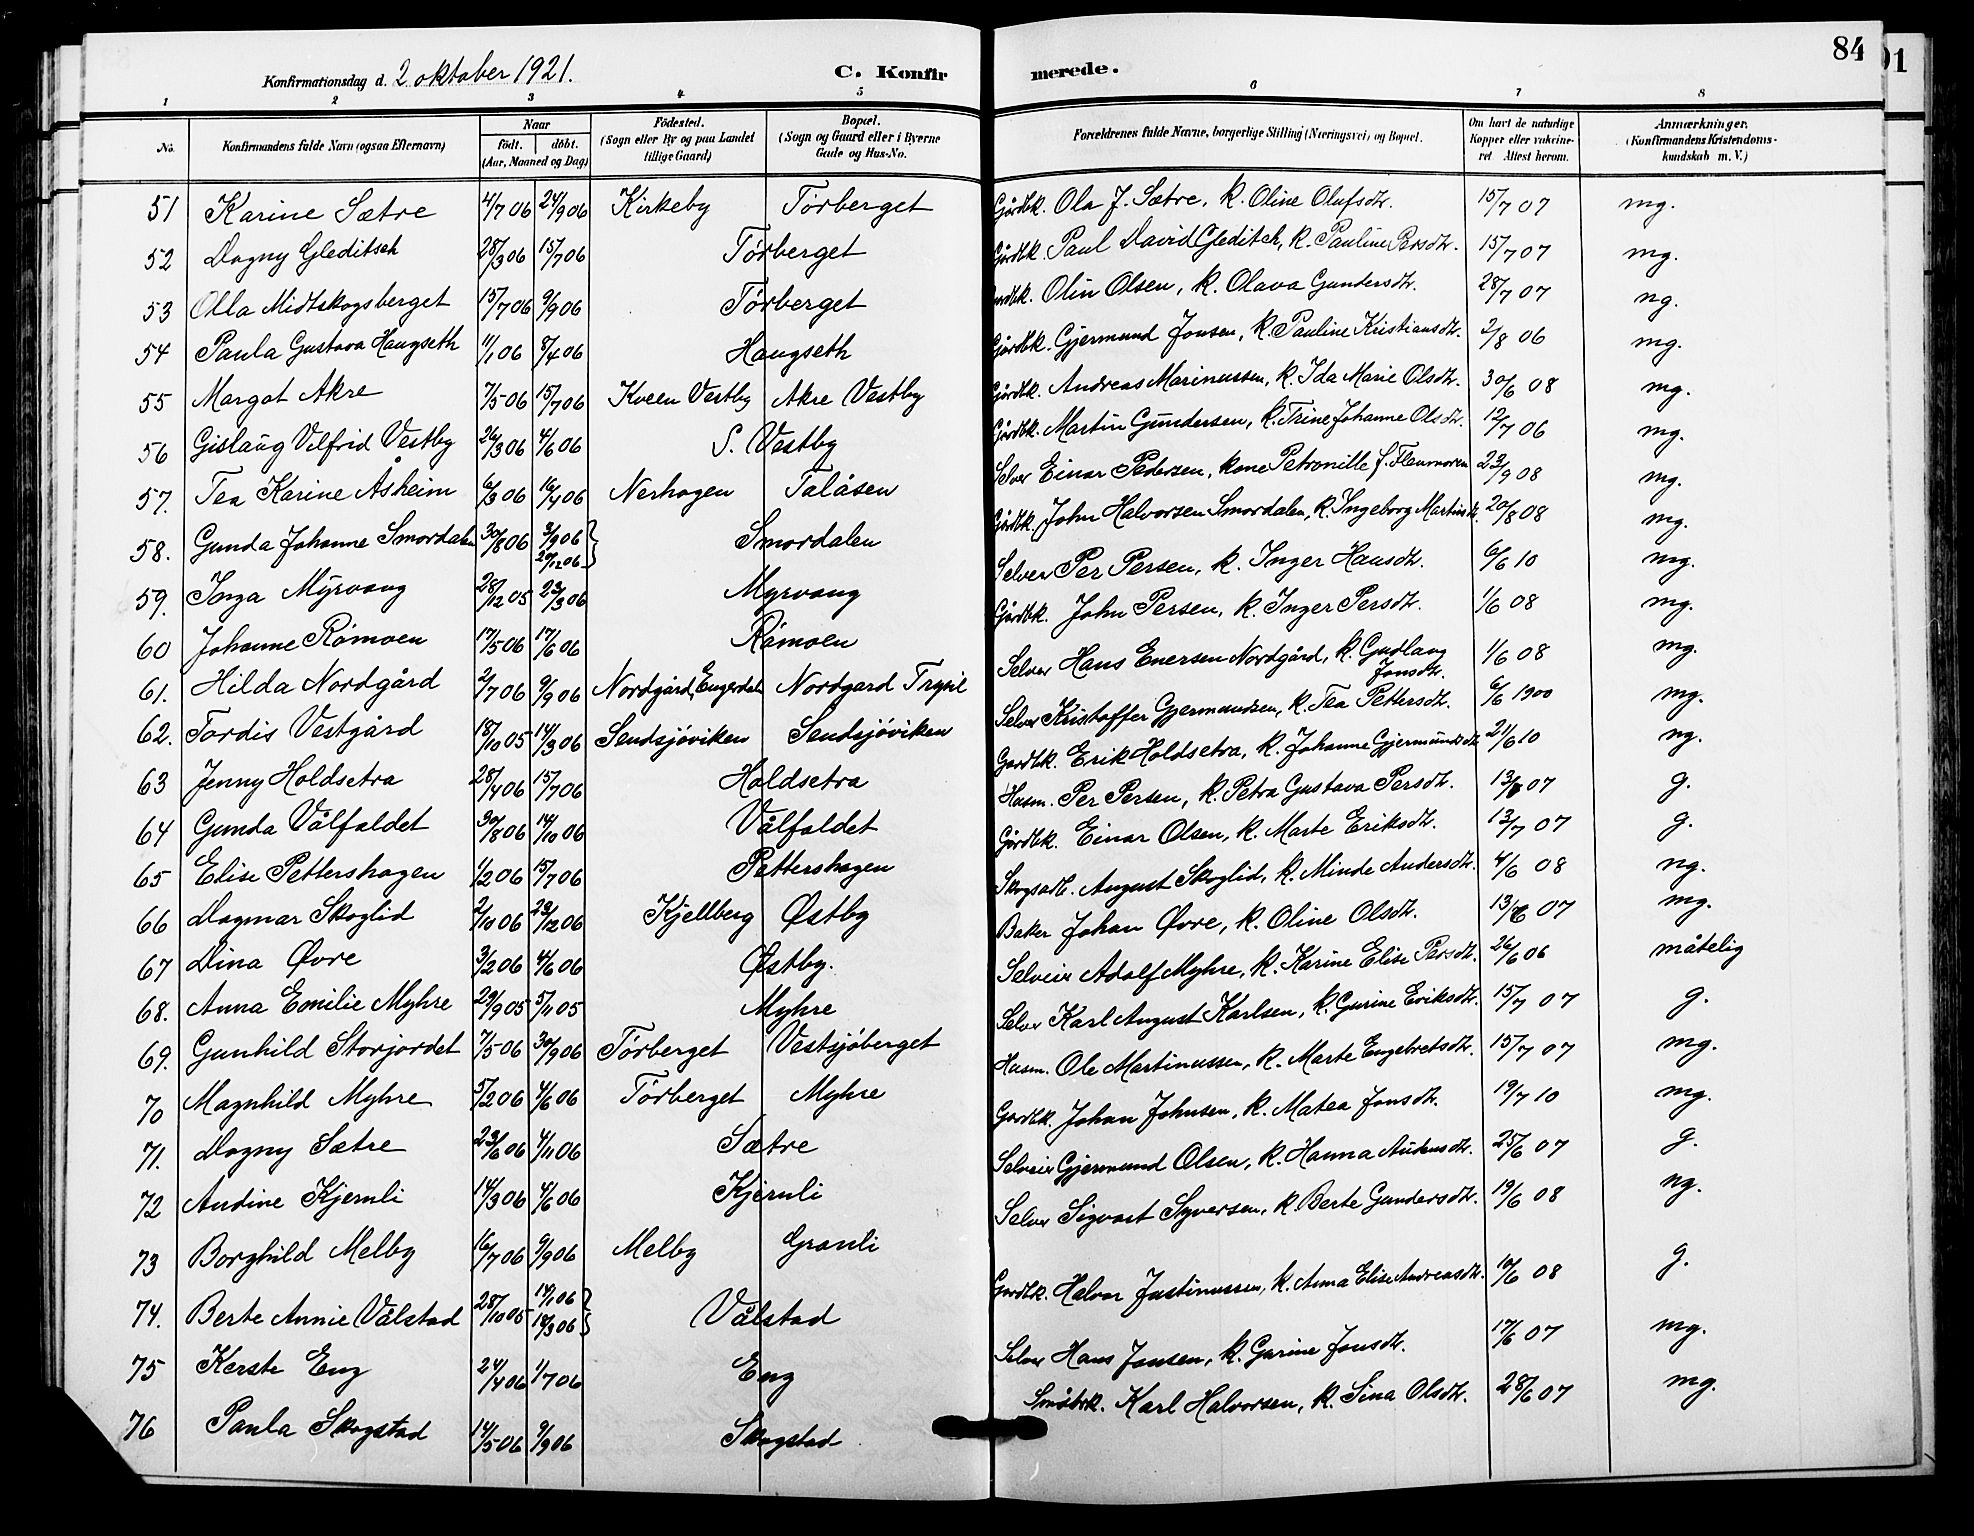 84
91
Konfirmationsdag d. 2 oktober 1921. C. Konfirmerede.
1 2 3 4 5 6 7 8
No. Konfirmandens fulde Navn (ogsaa Efternavn) Naar født. døbt. (Aar, Maaned og Dag) Fødested. (Sogn eller By og paa Landet tillige Gaard) Bopæl. (Sogn og Gaard eller i Byerne Gade og Hus-No. Forældrenes fulde Navne, borgerlige Stilling (Næringsvei) og Bopæl. Om havt de naturlige Kopper eller vakcineret Attest herom. Anmærkninger. (Konfirmandens Kristendomskundskab m. V.)
51 Karine Sætre 4/7 06 24/9 06 Kirkeby Törberget Gårdbk. Ola J. Sætre, k. Oline Olufsdtr. 15/7 07 mg.
52 Dagny Gleditsch 28/3 06 15/7 06 Törberget Gårdbk. Paul David Gleditch, k. Pauline Persdtr. 15/7 07 mg.
53 Olla Midtskogsberget 15/7 06 9/9 06 Törberget Gårdbk. Olin Olsen, k. Olava Gundersdtr. 28/7 07 ng.
54 Paula Gustava Haugseth 11/1 06 8/4 06 Haugseth Gårdbk. Gjermund Jonsen, k. Pauline Kristiansdtr. 2/8 06 mg.
55 Margot Akre 7/5 06 15/7 06 Kveen Vestby Akre Vestby Gårdbk. Andreas Marinussen, k. Ida Marie Olsdtr. 30/6 08 mg.
56 Gislaug Vilfrid Vestby 26/3 06 4/6 06 S. Vestby Gårdbk. Martin Gundersen, k. Trine Johanne Olsdtr. 12/7 06 mg.
57. Tea Karine Åsheim 6/3 06 16/4 06 Nerhagen Talåsen Selver Einar Pedersen, kone Petronille f. Flenmoren 23/9 08 mg.
58. Gunda Johanne Smordalen 30/8 06 3/9 06 27/12 06 Smordalen Gårdbk. John Halvorsen Smordalen, k. Ingeborg Martinsdtr. 20/8 08 mg.
59. Inga Myrvang 28/12 05 23/3 06 Myrvang Selver Per Persen, k. Inger Hansdtr. 6/6 10 mg.
60 Johanne Römoen 17/5 06 17/6 06 Römoen Gårdbk. John Persen, k. Inger Persdtr. 1/6 08 mg.
61. Hilda Nordgård 2/7 06 9/9 06 Nordgård, Engerdal Nordgard Trysil Selver Hans Enersen Nordgård, k. Gudlaug Jonsdtr. 1/6 08 mg.
62. Tordis Vestgård 18/10 05 14/3 06 Sendsjöviken Sendsjöviken Selver Kristoffer Gjermundsen, k. Tea Pettersdtr. 6/6 1900 mg.
63 Jenny Holdsetra 28/4 06 15/7 06 Holdsetra Gardbk. Erik Holdsetra, k. Johanne Gjermundsdtr. 21/6 10 ng.
64 Gunda Vålfaldet 30/8 06 14/10 06 Vålfaldet Husm. Per Persen, k. Petra Gustava Persdtr. 13/8 07 g.
65 Elise Pettershagen 1/2 06 15/7 06 Pettershagen Gårdbk. Einar Olsen, k. Marte Eriksdtr. 13/7 07 g.
66 Dagmar Skoglid 2/10 06 23/12 06 Kjellberg Østby Skogsarb. August Skoglid, k. Minda Andersdtr. 4/6 08 ng.
67 Dina Øvre 3/2 06 4/6 06 Østby. Baker Johan Øvre, k. Oline Olsdtr. 13/6 07 mg.
68. Anna Emilie Myhre 29/9 05 5/11 05 Myhre Selveier Adolf Myhre, k. Karine Elise Persdtr. 26/6 06 måtelig
69. Gunhild Storjordet 7/5 06 30/9 06 Törberget Vestsjöberget Selver Karl August Karlsen, k. Gurine Eriksdtr. 15/7 07 g.
70 Magnhild Myhre 5/2 06 4/6 06 Törberget Myhre Husm. Ole Martinussen, k. Marte Engebretsdtr. 15/7 07 mg.
71. Dagny Sætre 23/6 06 4/11 06 Sætre Gardbk. Johan Johnsen, k. Matea Jonsdtr. 19/7 10 mg.
72 Andine Kjernli 14/3 06 4/6 06 Kjernli Selveier Gjermund Olsen, k. Hanna Audensdtr. 25/6 07 g.
73 Borghild Melby 16/7 06 9/9 06 Melby Granli Selver Sigvart Syversen, k. Berte Gundersdtr. 19/6 08 ng.
74. Berte Annie Vålstad 28/10 05 14/1 06 18/3 06 Vålstad Gardbk. Halvor Justinussen, k. Anna Elise Andreasdtr. 10/6 08 g.
75 Kerste Eng 24/4 06 1/7 06 Eng Selver Hans Jonsen, k. Gurine Jonsdtr. 17/6 07 mg.
76 Paula Skogstad 14/5 06 9/9 06 Skogstad Småbrk. Karl Halvorsen, k. Sina Olsdtr. 28/6 07 mg.